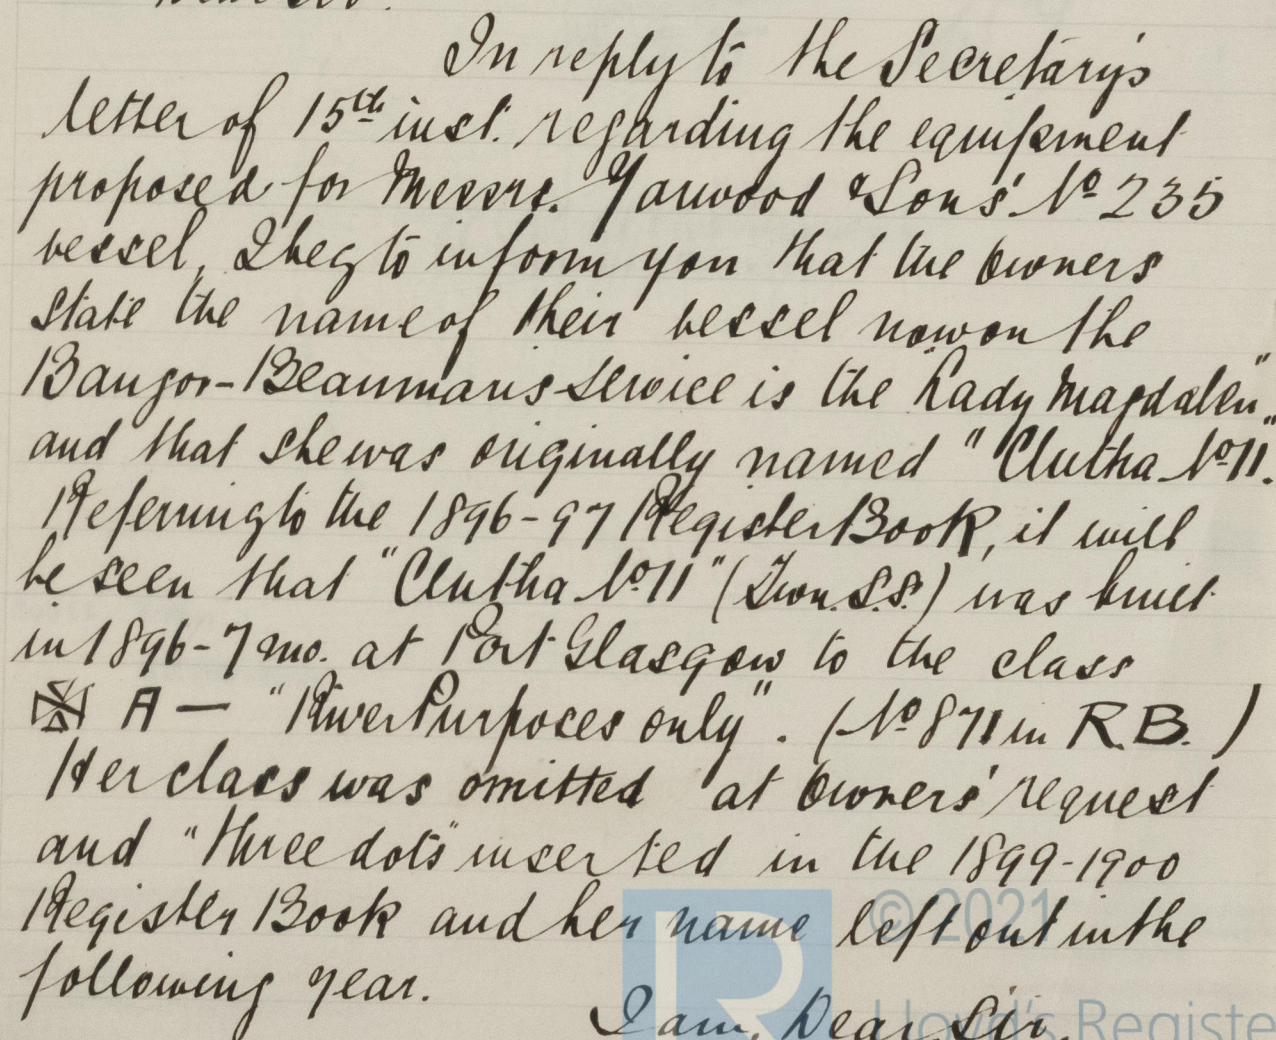 Dear Sir.
In reply to the Secretary's
letter of 15th inst. regarding the equipment
proposed for Messrs. Yarwood & Sons' No 235
vessel, I beg to inform you that the Owners
state the name of their vessel now on the
Bangor-Beaumaris service is the "Lady Magdalen",
and that she was originally named "Clutha No 11".
Referring to the 1896-97 Register Book, it will
be seen that "Clutha No 11" (Twn. S.S.) was built
in 1896-7 mo. at Port Glasgow to the class
✠ A — "River Purposes only". (No 871 in R.B.)
Her class was omitted at Owners' request
and "three dots" inserted in the 1899-1900
Register Book and her name left out in the
following year.
I am, Dear Sir,
© 2021
Lloyd's Registe